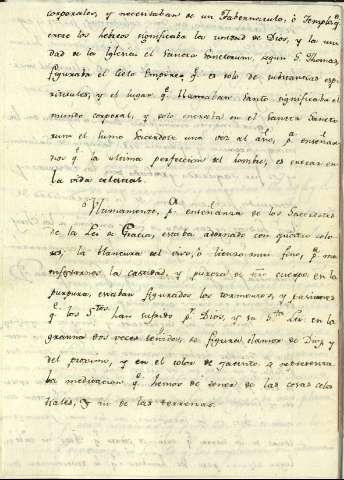 corporales, y necesitaban de un Tabernaculo, ó Templo q.^e
entre los hebreos significaba la unidad de Dios, y la uni
dad de la Iglesia el Sancta Sanctorum, segun S. Thomas,
figuraba el Cielo Empireo q.^e es solo de substancias espi
rituales, y el lugar q.^e llamaban Santo significaba el
mundo corporal, y solo entraba en el Sancta Sancto
rum el sumo Sacerdote una vez al año, p.^a enseñar
nos q.^e la ultima perfeccion del hombre, es entrar en
la vida celestial.
Ultimamente, p.^a enseñanza de los Sacerdotes
de la Lei de Gracia, estaba adornado con quatro colo
res, la blancura del viso, ó lienzo mui fino, p.^a ma
nifestarnos la castidad, y pureza de nro cuerpo, en la
purpura, estaban figurados los tormentos, y pasiones
q.^e los S.^tos han sufrido p.^r Dios, y su S.^ta Lei, en la
grana dos veces teñida, se figura el amor de Dios, y
del proximo, y en el color de jacinto, se representa
la meditacion q.^e hemos de tener de las cosas celes
tiales, y no de las terrenas.